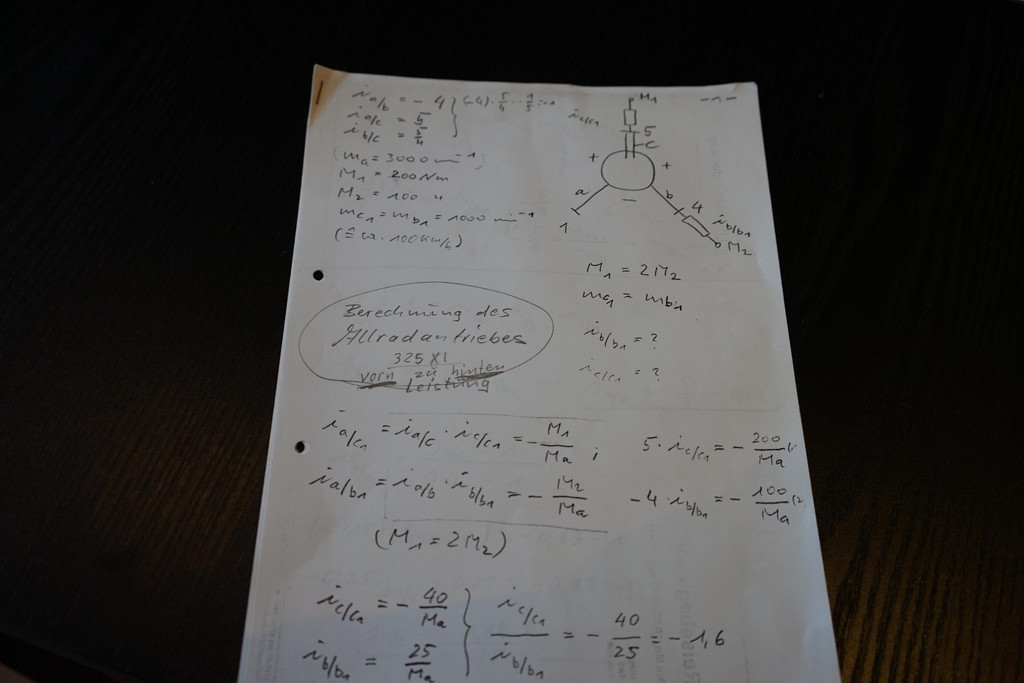 i a/b = - 4 } (-4) · 5/4 · 1/5 = -1
i a/c = 5
i b/c = 5/4
(ma = 3000 min⁻¹)
M1 = 200 Nm
M2 = 100 "
mc1 = mb1 = 1000 min⁻¹
(≙ ca. 100 km/h)
- 1 -
M1
i c/c1
5
c
+ +
a b
-
1
4
i b/b1
M2
M1 = 2M2
mc1 = mb1
i b/b1 = ?
i c/c1 = ?
Berechnung des
Allradantriebes
325 XI
vorn zu hinten
Leistung
i a/c1 = i a/c · i c/c1 = - M1/Ma ; 5 · i c/c1 = - 200/Ma
i a/b1 = i a/b · i b/b1 = - M2/Ma -4 · i b/b1 = - 100/Ma
(M1 = 2M2)
i c/c1 = - 40/Ma } i c/c1 / i b/b1 = - 40/25 = - 1,6
i b/b1 = 25/Ma